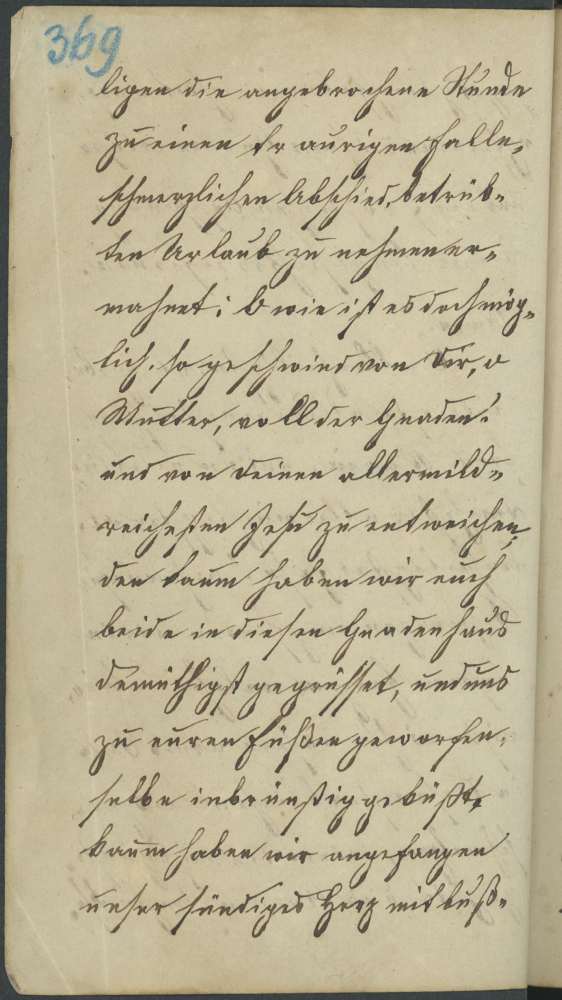 369
ligen die angebrochene Stunde
zu einen traurigen Falle,
schmerzlichen Abschied, betrüb-
ten Urlaub zu nehmen er-
mahnet: O wie ist es doch mög-
lich, so geschwind von Dir, o
Mutter, voll der Gnaden!
und von deinen allermild-
reichesten Jesu zu entweichen;
den kaum haben wir euch
beide in diesen Gnadenhaus
demüthigst gegrüsset, und uns
zu euren Füßen geworfen,
selbe inbrünstig geküßt,
kaum haben wir angefangen
unser sündiges Herz mit buß-